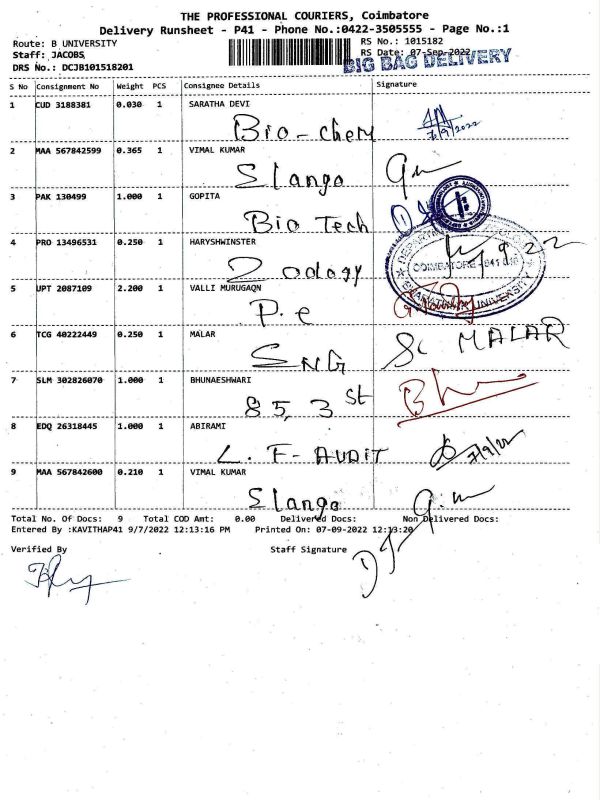 THE PROFESSIONAL COURIERS, Coimbatore
Delivery Runsheet - P41 - Phone No.:0422-3505555 - Page No.:1
Route: B UNIVERSITY RS No.: 1015182
Staff: JACOBS RS Date: 07-Sep-2022
DRS No.: DCJB101518201 BIG BAG DELIVERY
S No Consignment No Weight PCS Consignee Details Signature
1 CUD 3188381 0.030 1 SARATHA DEVI
Bio-chem 7/9/2022
2 MAA 567842599 0.365 1 VIMAL KUMAR
Slango
3 PAK 130499 1.000 1 GOPITA
Bio Tech
4 PRO 13496531 0.250 1 HARYSHWINSTER
Zoology
COIMBATORE - 641 046
BHARATHIAR UNIVERSITY
5 UPT 2087109 2.200 1 VALLI MURUGAQN
P.e
6 TCG 40222449 0.250 1 MALAR
SNG Sc MALAR
7 SLM 302826070 1.000 1 BHUNAESHWARI
85, 3 st
8 EDQ 26318445 1.000 1 ABIRAMI
L. F- AUDIT 7/9/22
9 MAA 567842600 0.210 1 VIMAL KUMAR
Slango
Total No. Of Docs: 9 Total COD Amt: 0.00 Delivered Docs: Non Delivered Docs:
Entered By :KAVITHAP41 9/7/2022 12:13:16 PM Printed On: 07-09-2022 12:13:20
Verified By Staff Signature